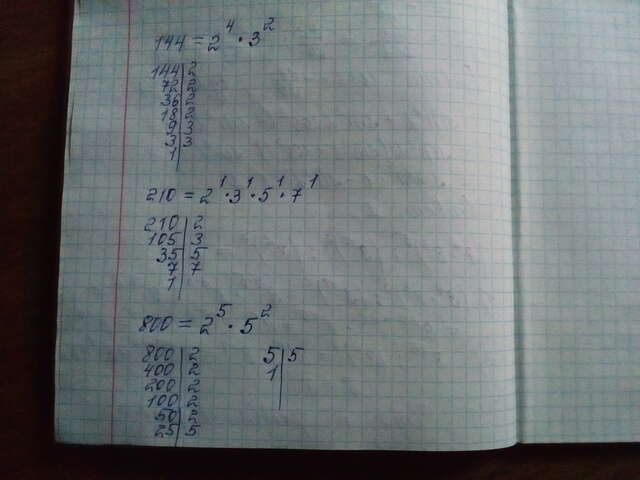 144 = 2⁴ · 3²
144 | 2
72 | 2
36 | 2
18 | 2
9 | 3
3 | 3
1 |
210 = 2¹ · 3¹ · 5¹ · 7¹
210 | 2
105 | 3
35 | 5
7 | 7
1 |
800 = 2⁵ · 5²
800 | 2
400 | 2
200 | 2
100 | 2
50 | 2
25 | 5
5 | 5
1 |